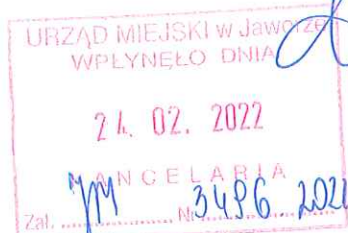 URZĄD MIEJSKI w Jaworze
WPŁYNĘŁO DNIA
24. 02. 2022
KANCELARIA
Zał. Nr 3496 2022